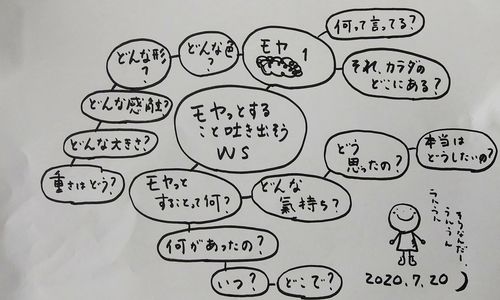 何って言ってる?
モヤ
1
どんな色
?
どんな形
?
それ、カラダの
どこにある?
どんな感触?
モヤっとする
こと吐き出そう
WS
どんな大きさ?
重さはどう?
モヤっと
することって何?
どんな
氣持ち?
どう
思ったの?
本当は
どうしたいの?
何があったの?
いつ?
どこで?
そうなんだー、
うんうん
うんうん
2020.7.20